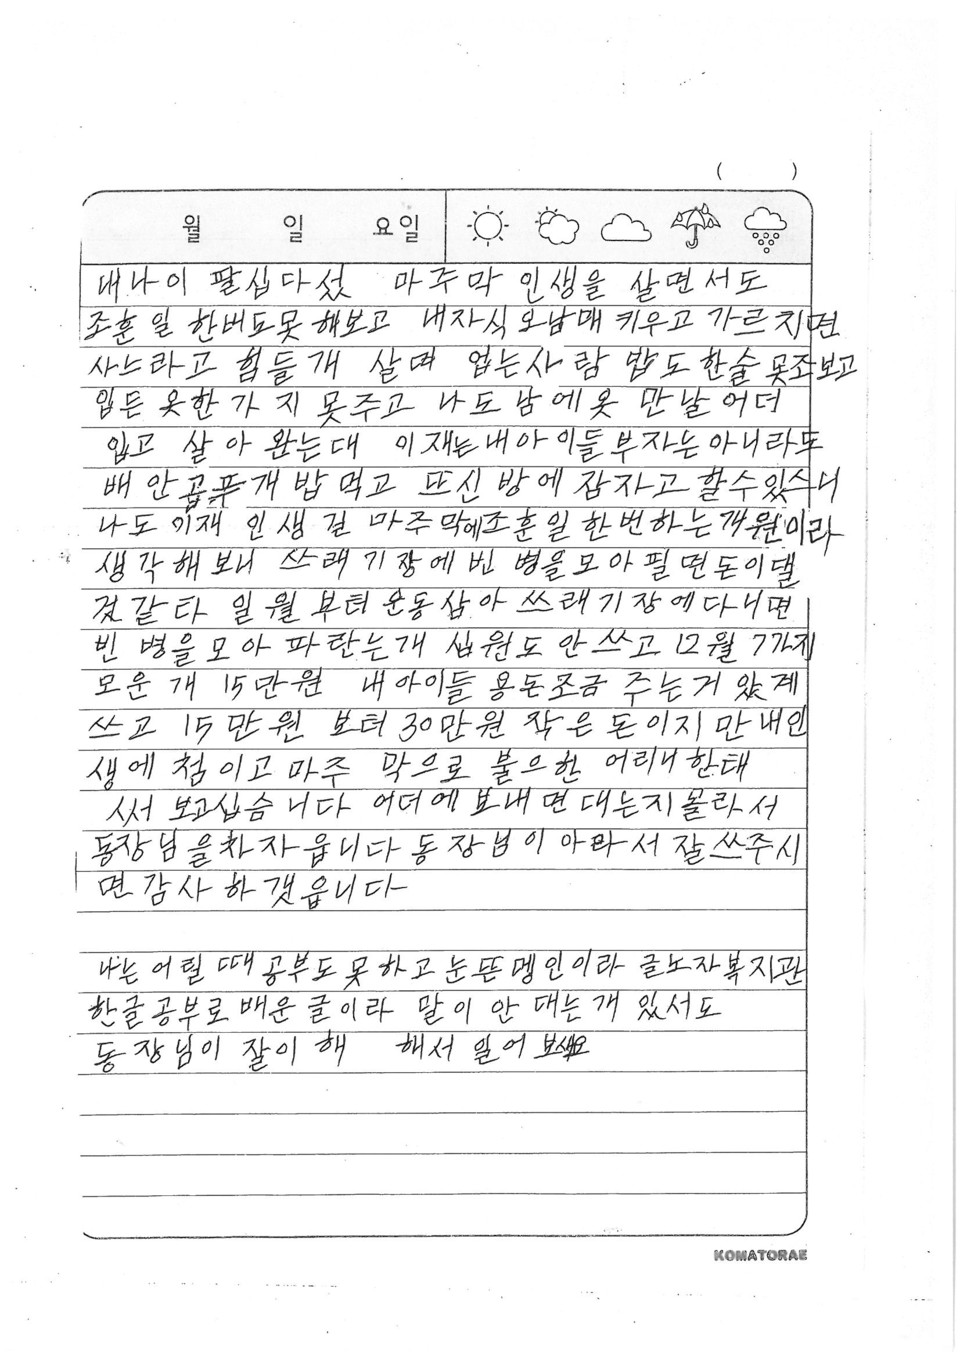 ( )
월 일 요일
내나이 팔십다섯 마주막 인생을 살면서도
조훈일 한버도못 해보고 내자식 오남매 키우고 가르치면
사느라고 힘들개 살며 업는사람 밥도한술못조보고
입든 옷한가지 못주고 나도남에옷 만날어더
입고 살아 완는대 이재는내아이들부자는아니라도
배안곱푸개밥먹고 뜨신방에잠자고할수있스니
나도이재 인생길 마주막에조훈일한번하는개원이라
생각해보니 쓰래기장에빈병을모아필면돈이댈
겄같타 일월부터운동삼아쓰래기장에다니면
빈병을모아파란는개 십원도안쓰고12월7가지
모운개 15만원 내아이들용돈조금주는거았계
쓰고 15만원 보터30만원 작은돈이지만내인
생에첨이고마주막으로 불으한 어리니한태
써보고십슴니다 어더에보내면대는지몰라서
동장님을차자읍니다동장님이아라서잘쓰주시
면감사하갯읍니다
나는어릴때공부도못하고눈뜬멩인이라글노자복지관
한글공부로배운글이라 말이안대는개있서도
동장님이잘이해 해서일어보세요
KOMATORAE